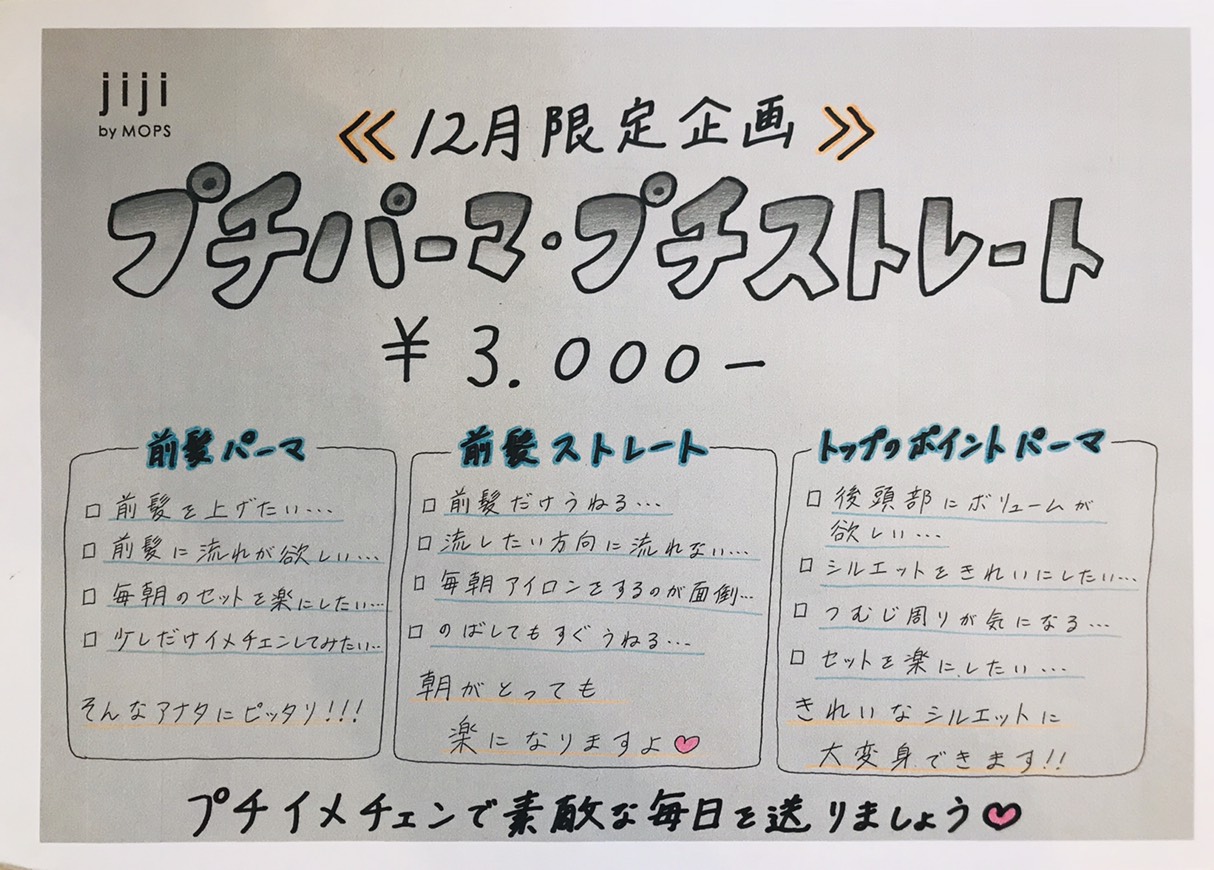 jiji
by MOPS
≪12月限定企画≫
プチパーマ・プチストレート
¥3.000-
前髪パーマ
□ 前髪を上げたい…
□ 前髪に流れが欲しい…
□ 毎朝のセットを楽にしたい…
□ 少しだけイメチェンしてみたい…
そんなアナタにピッタリ!!!
前髪ストレート
□ 前髪だけうねる…
□ 流したい方向に流れない…
□ 毎朝アイロンをするのが面倒…
□ のばしてもすぐうねる…
朝がとっても
楽になりますよ♡
トップのポイントパーマ
□ 後頭部にボリュームが
欲しい…
□ シルエットをきれいにしたい…
□ つむじ周りが気になる…
□ セットを楽にしたい…
きれいなシルエットに
大変身できます!!
プチイメチェンで素敵な毎日を送りましょう♡